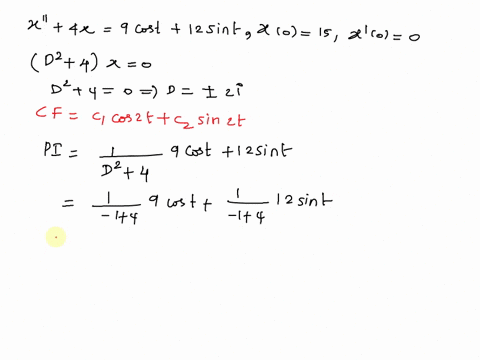 x'' + 4x = 9 cost + 12 sint, x(0) = 15, x'(0) = 0
(D² + 4) x = 0
D² + 4 = 0 => D = ± 2i
CF = c₁ cos2t + c₂ sin 2t
PI = 1/(D² + 4) 9 cost + 12 sint
= 1/(-1+4) 9 cost + 1/(-1+4) 12 sint